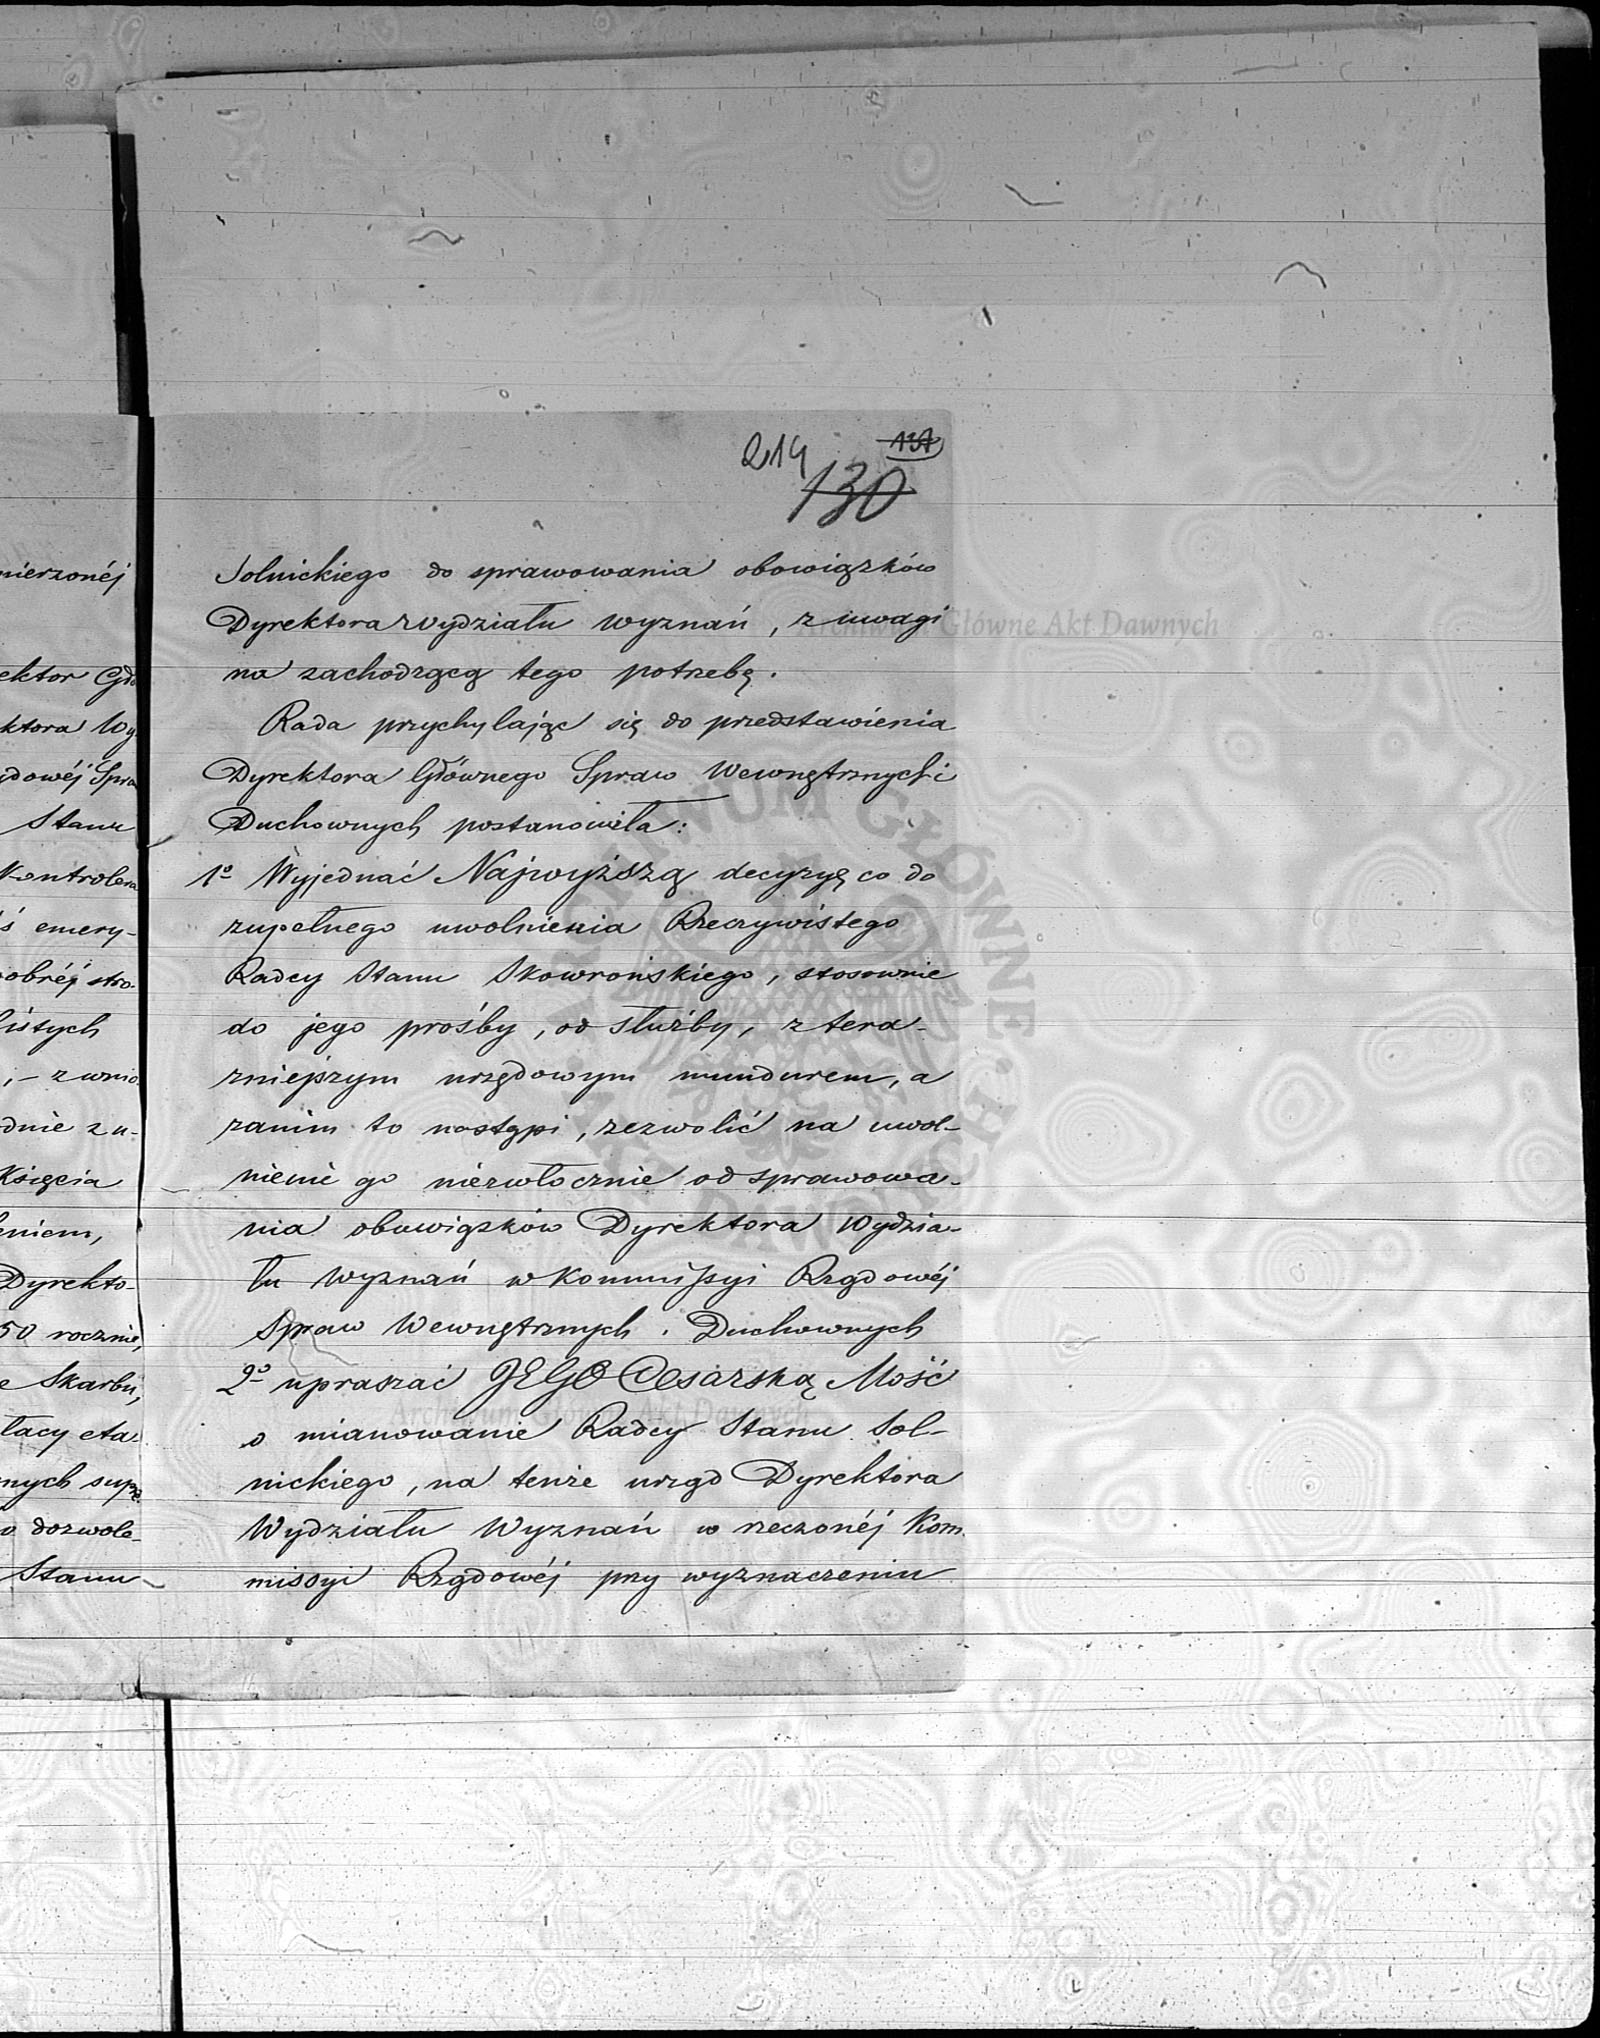 mierzonéj
ektor Głó
ktora Wy
dowéj Spra
Stanu
Kontrolera
ś emery-
obréj stro-
istych
, - z wnio
dnie z u-
Księcia
eniem,
Dyrekto-
50 rocznie,
e Skarbu,
łacy eta-
nych
o dozwole-
Stanu
214 130
Solnickiego do sprawowania obowiązków
Dyrektora Wydziału Wyznań, z uwagi
na zachodzącą tego potrzebę.
Rada przychylając się do przedstawienia
Dyrektora Głównego Spraw Wewnętrznych i
Duchownych postanowiła:
1o Wyjednać Najwyższą decyzyę co do
zupełnego uwolnienia Rzeczywistego
Radcy Stanu Skowrońskiego, stosownie
do jego prośby, od służby, z tera-
zniejszym urzędowym mundurem, a
zanim to nastąpi, zezwolić na uwol-
nienie go niezwłocznie od sprawowa-
nia obowiązków Dyrektora Wydzia-
łu Wyznań w Kommissyi Rządowéj
Spraw Wewnętrznych i Duchownych
2o upraszać JEGO Cesarską Mość
o mianowanie Radcy Stanu Sol-
nickiego, na tenże urząd Dyrektora
Wydziału Wyznań w rzeczonéj Kom-
missyi Rządowéj przy wyznaczeniu
Archiwum Główne Akt Dawnych
ARCHIWUM GŁÓWNE AKT DAWNYCH
Archiwum Główne Akt Dawnych